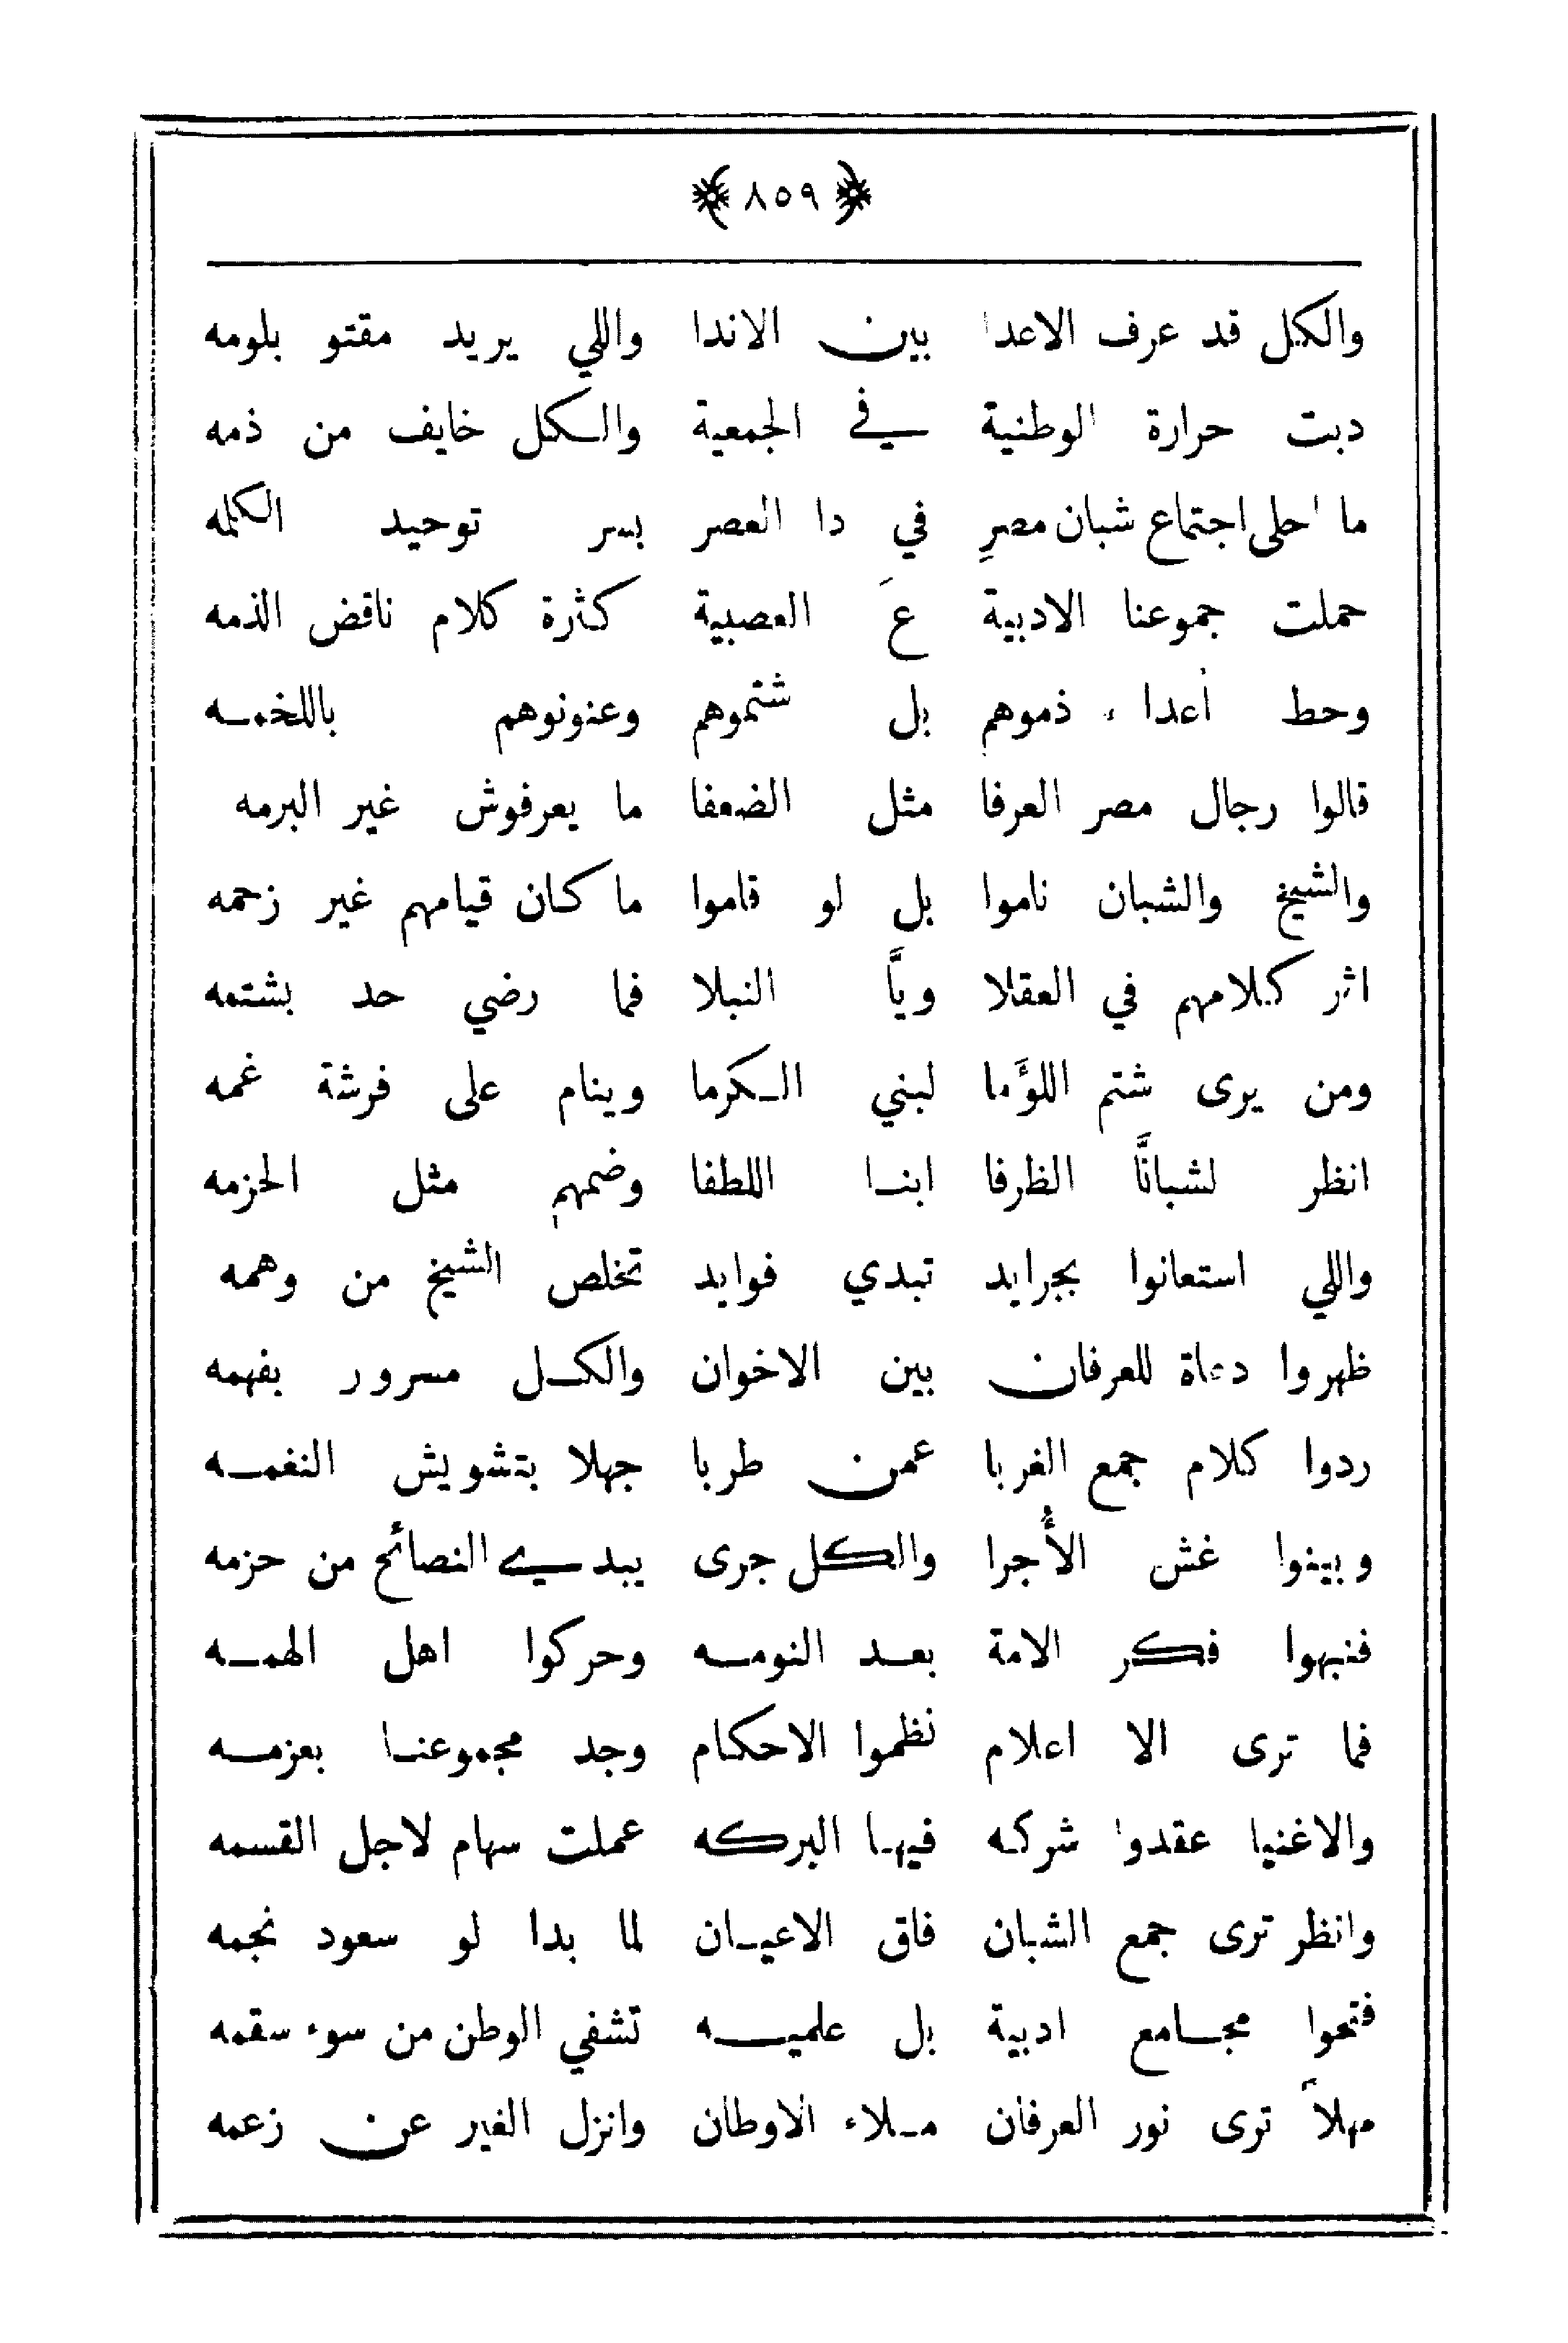 ﴿ ٨٥٩ ﴾
والكل قد عرف الاعدا بين الاندا واللي يريد مقتو بلومه
دبت حرارة الوطنية في الجمعية والكل خايف من ذمه
ما احلى اجتماع شبان مصرِ في دا العصر بسر توحيد الكلمه
حملت جموعنا الادبية عَ العصبية كثرة كلام ناقض الذمه
وحط أعداء ذموهم بل شتموهم وعنونوهم باللخمه
قالوا رجال مصر العرفا مثل الضعفا ما يعرفوش غير البرمه
والشيخ والشبان ناموا بل لو قاموا ما كان قيامهم غير زحمه
اثر كلامهم في العقلا ويَّا النبلا فما رضي حد بشتمه
ومن يرى شتم اللؤَما لبني الكرما وينام على فرشة غمه
انظر لشبانَّا الظرفا ابنا اللطفا وضمهم مثل الحزمه
واللي استعانوا بجرايد تبدي فوايد تخلص الشيخ من وهمه
ظهروا دعاة للعرفان بين الاخوان والكل مسرور بفهمه
ردوا كلام جمع الغربا عمن طربا جهلا بتشويش النغمه
وبينوا غش الأُجرا والكل جرى يبدي النصائح من حزمه
فنبهوا فكر الامة بعد النومه وحركوا اهل الهمه
فما ترى الا اعلام نظموا الاحكام وجد مجموعنا بعزمه
والاغنيا عقدوا شركه فيها البركه عملت سهام لاجل القسمه
وانظر ترى جمع الشبان فاق الاعيان لما بدا لو سعود نجمه
فتحوا مجامع ادبية بل علميه تشفي الوطن من سوء سقمه
مهلاً ترى نور العرفان ملاء الاوطان وانزل الغير عن زعمه